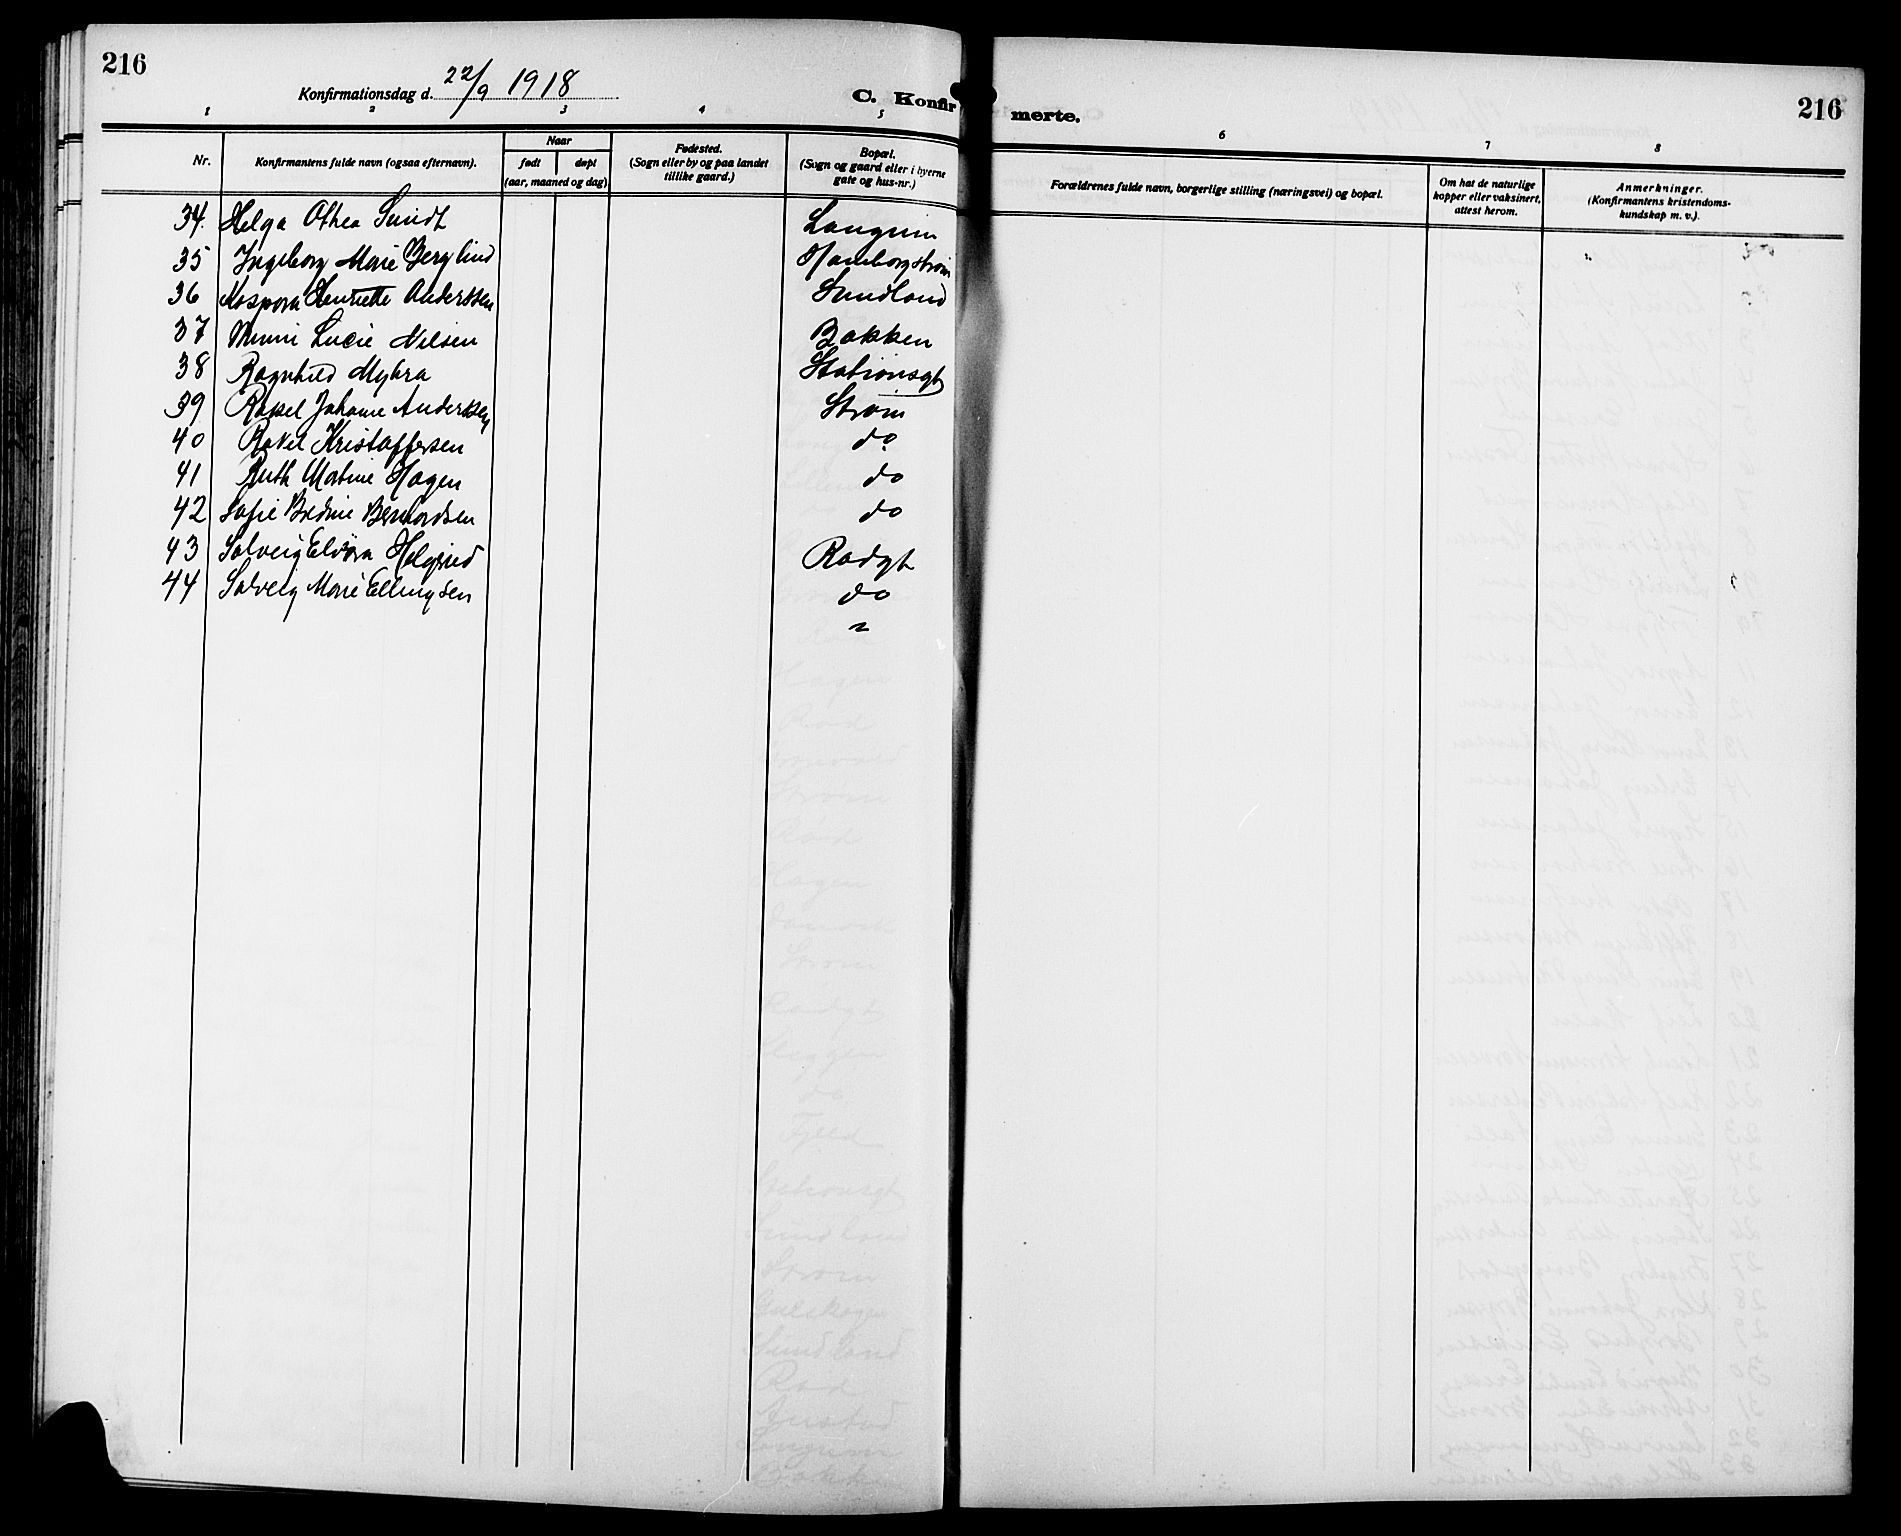 216
Konfirmationsdag d. 22/9 1918
C. Konfir merte.
216
1 2 3 4 5 6 7 8
Nr.
Konfirmantens fulde navn (ogsaa efternavn).
Naar
født døpt
(aar, maaned og dag)
Fødested.
(Sogn eller by og paa landet
tillike gaard.)
Bopæl.
(Sogn og gaard eller i byerne
gate og hus-nr.)
Forældrenes fulde navn, borgerlige stilling (næringsvei) og bopæl.
Om hat de naturlige
kopper eller vaksinert,
attest herom.
Anmerkninger.
(Konfirmantens kristendoms-
kundskap m. v.).
34. Helga Othea Sundt Langum
35 Ingeborg Marie Berglind Hamborgstrøm
36 Henriette Anderssen Sundland
37 Lucie Nilsen Bakken
38 Ragnhild Myhra Stationsgt
39 Rakel Johanne Anderssen Strøm
40 Rakel Kristoffersen do
41 Ruth Martine Hagen do
42 Sofie Bredine Bernhardsen do
43 Solveig Elvira Helgerud Rødgt
44 Solveig Marie Ellingsen do
"